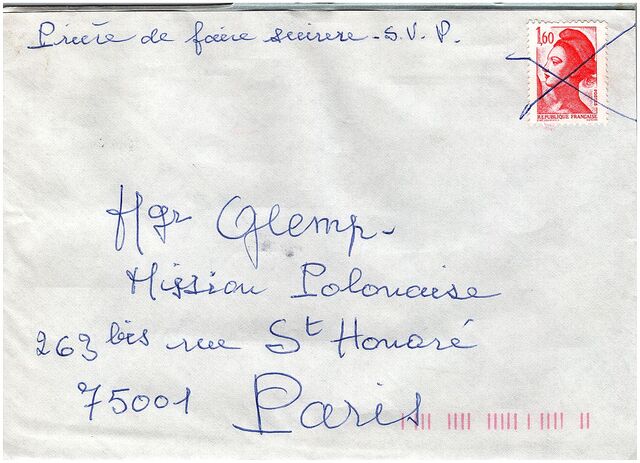 Prière de faire suivre - S.V.P.
1,60
REPUBLIQUE FRANÇAISE
Mgr Glemp -
Mission Polonaise
263 bis rue St Honoré
75001 Paris